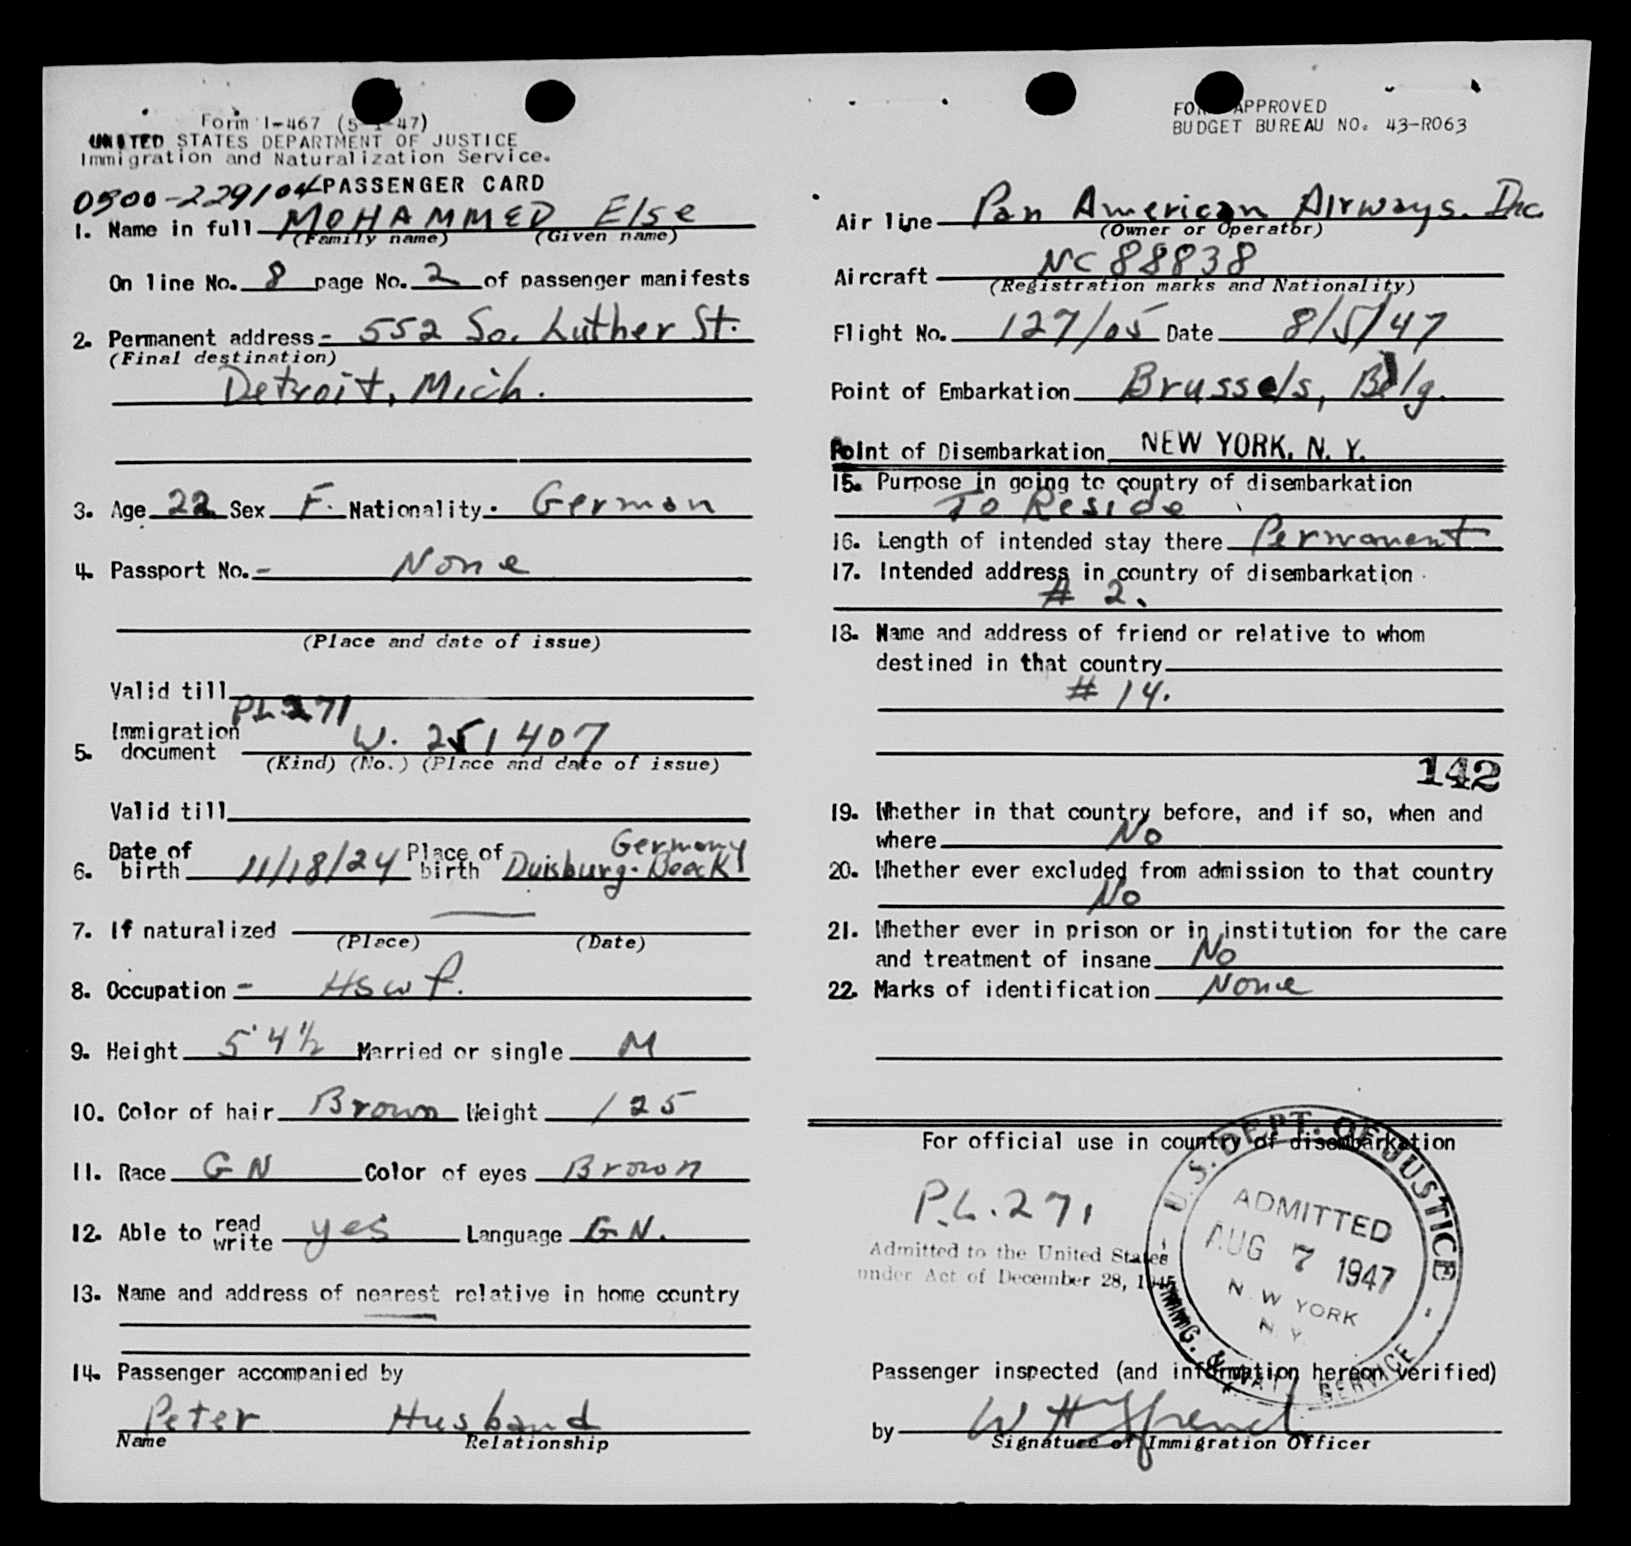 Form I-467 (5-1-47)
UNITED STATES DEPARTMENT OF JUSTICE
Immigration and Naturalization Service.
0300-229104 PASSENGER CARD
1. Name in full MOHAMMED Else
(Family name) (Given name)
On line No. 8 page No. 2 of passenger manifests
2. Permanent address- 552 So. Luther St.
(Final destination)
Detroit, Mich.
3. Age 22 Sex F. Nationality. German
4. Passport No.- None
(Place and date of issue)
Valid till
PL 271
5. Immigration document W. 251407
(Kind) (No.) (Place and date of issue)
Valid till
6. Date of birth 11/18/24 Place of birth Duisburg. Beeck Germany
7. If naturalized —
(Place) (Date)
8. Occupation - Hswf.
9. Height 5'4½ Married or single M
10. Color of hair Brown Weight 125
11. Race GN Color of eyes Brown
12. Able to read write yes Language GN.
13. Name and address of nearest relative in home country
14. Passenger accompanied by
Peter Husband
Name Relationship
FORM APPROVED
BUDGET BUREAU NO. 43-R063
Air line Pan American Airways. Inc.
(Owner or Operator)
Aircraft NC 88838
(Registration marks and Nationality)
Flight No. 127/05 Date 8/5/47
Point of Embarkation Brussels, Belg.
Point of Disembarkation NEW YORK, N. Y.
15. Purpose in going to country of disembarkation
To Reside
16. Length of intended stay there Permanent
17. Intended address in country of disembarkation
# 2.
18. Name and address of friend or relative to whom
destined in that country
# 14.
142
19. Whether in that country before, and if so, when and
where No
20. Whether ever excluded from admission to that country
No
21. Whether ever in prison or in institution for the care
and treatment of insane No
22. Marks of identification None
For official use in country of disembarkation
P.L. 271
Admitted to the United States
under Act of December 28, 1945
U.S. DEPT. OF JUSTICE
ADMITTED
AUG 7 1947
NEW YORK
N. Y.
IMMIG. & NATZ SERVICE
Passenger inspected (and information hereon verified)
by
Signature of Immigration Officer